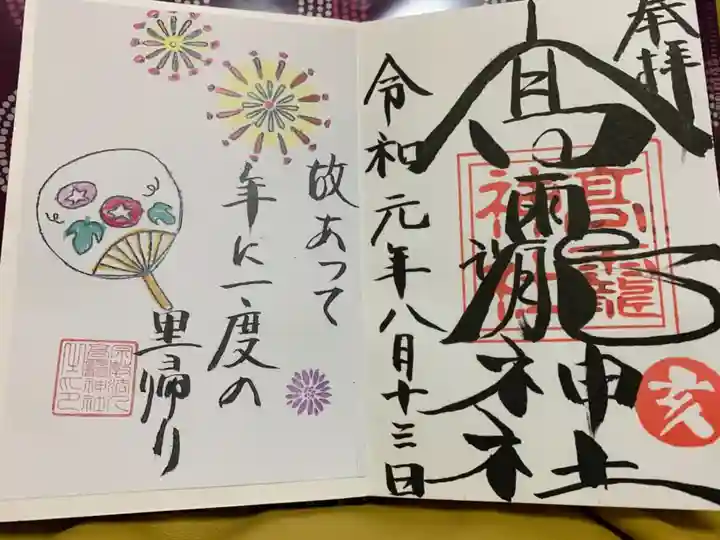 奉拝
高龗神社
令和元年八月十三日
亥
高龗
神社
故あって
年に一度の
里帰り